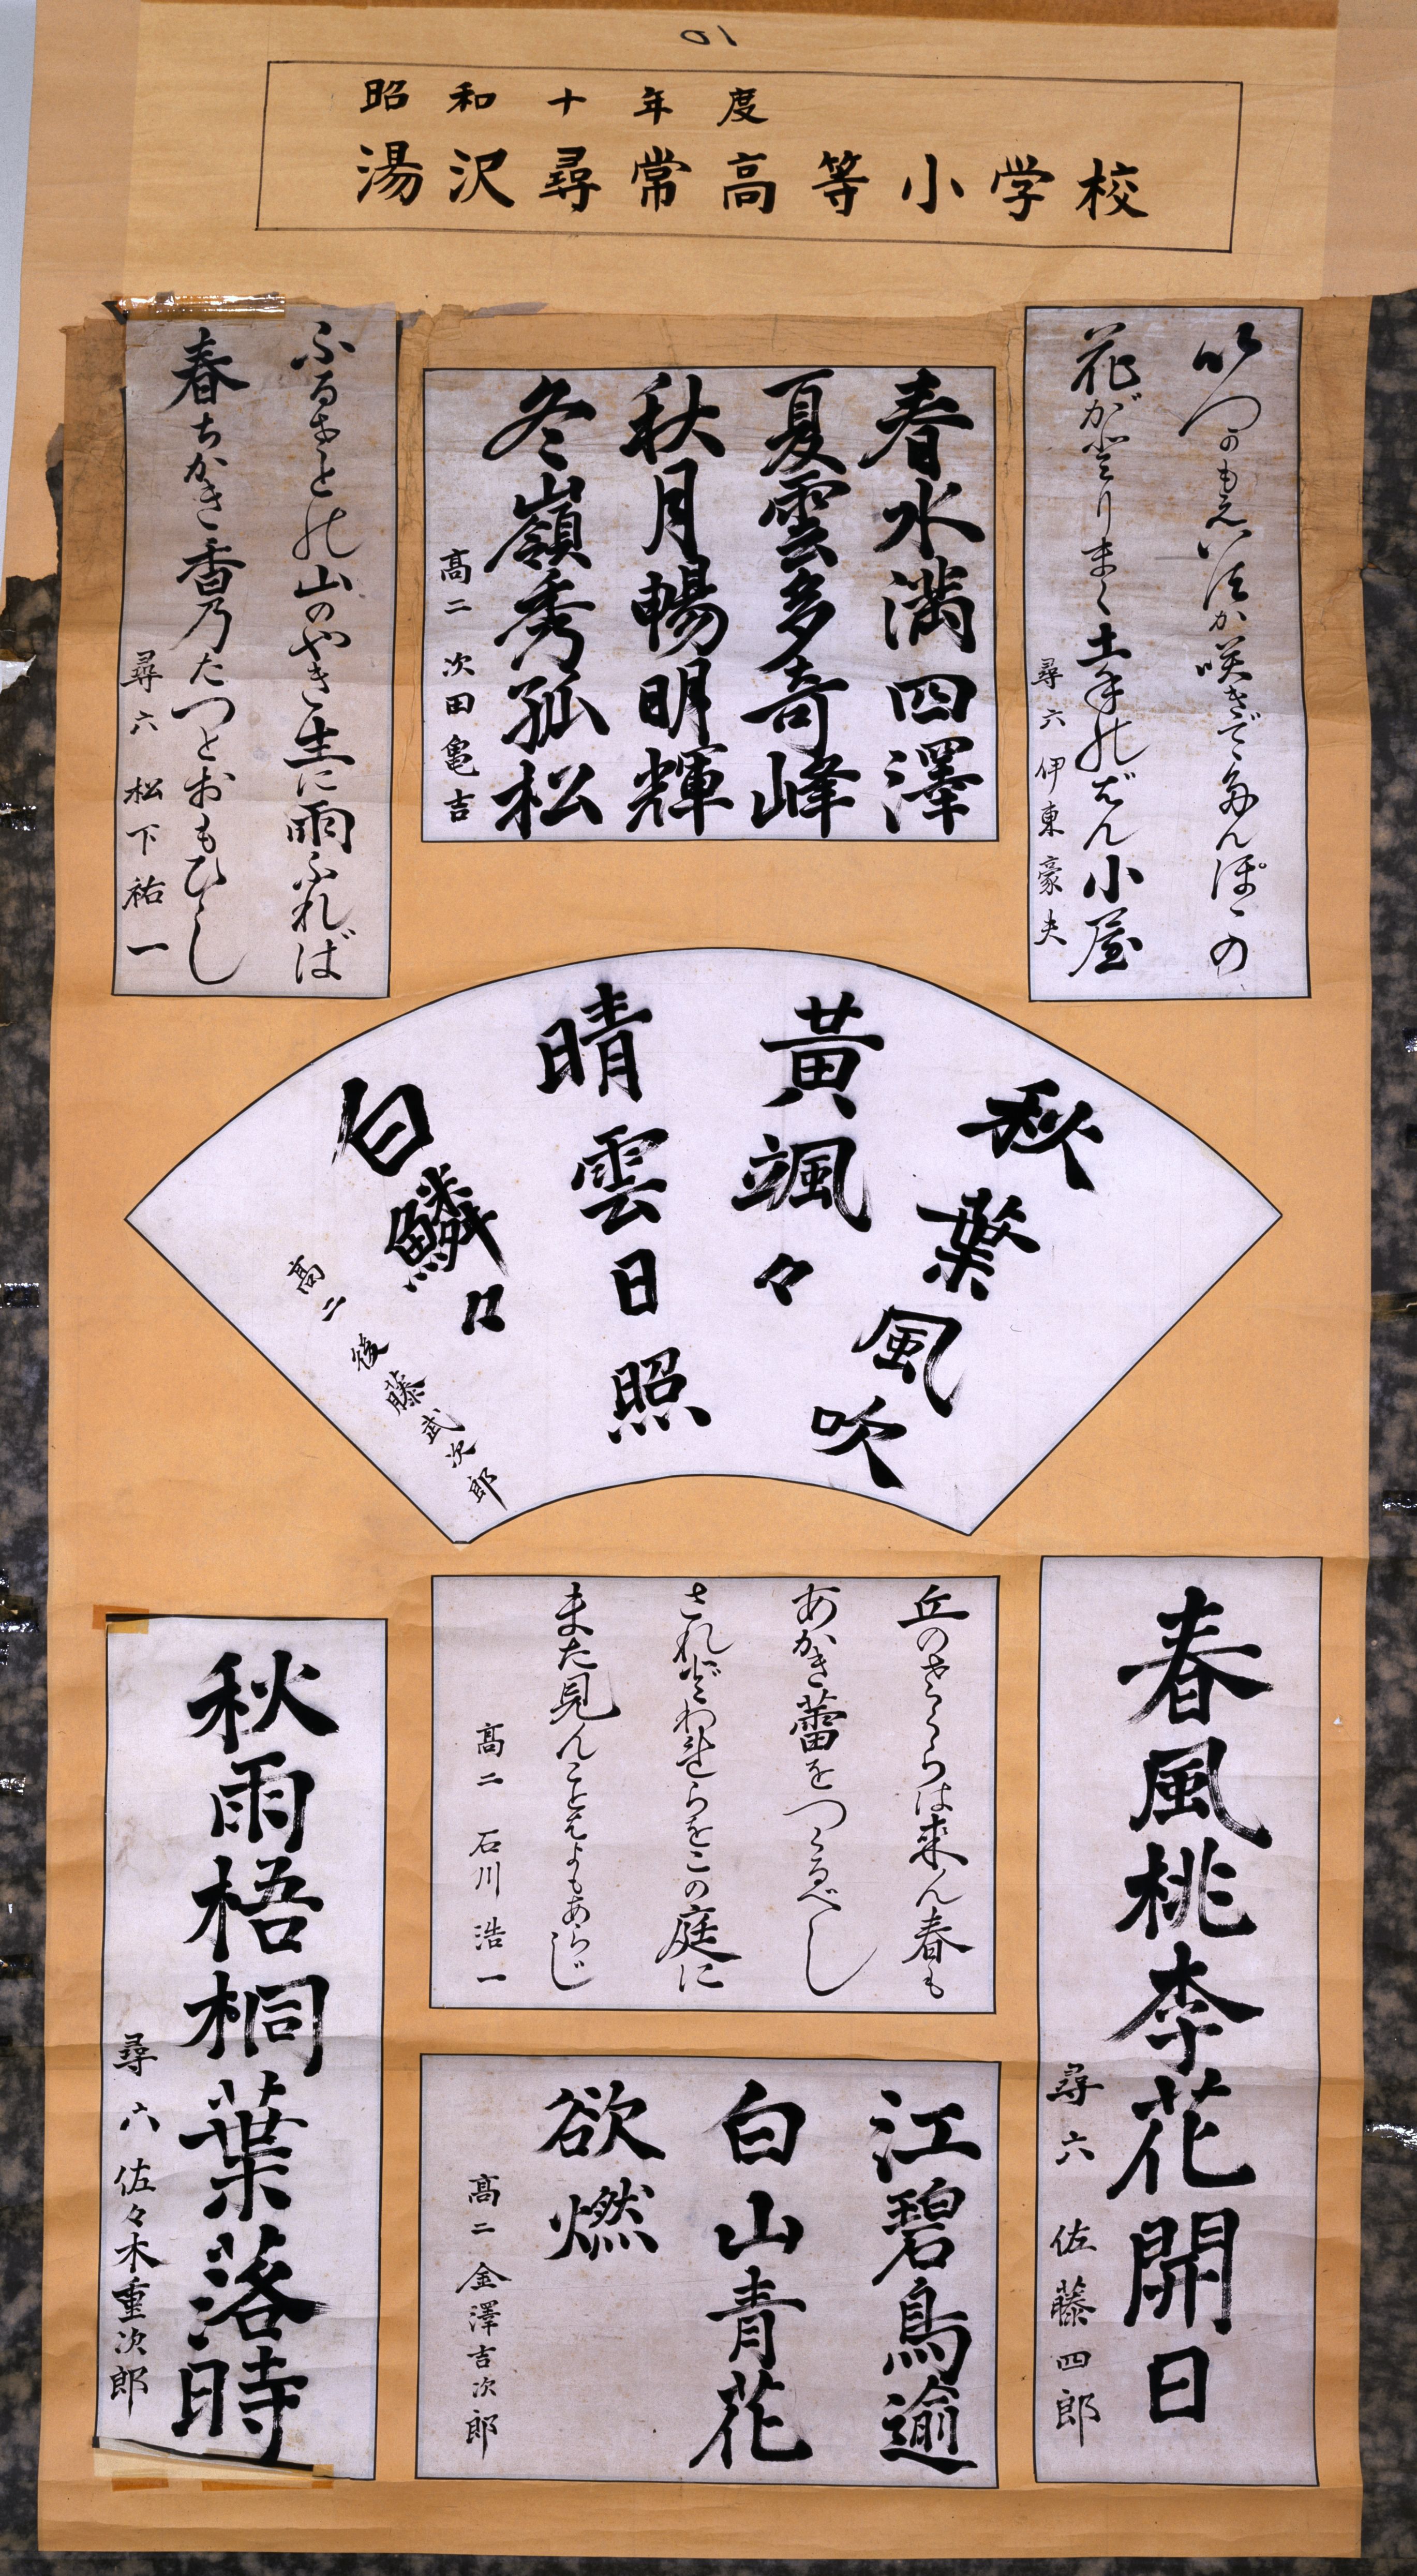 10
昭和十年度
湯沢尋常高等小学校
いつの
咲きでたんぽゝの
花がとりまく土手のばん小屋
尋六 伊東豪夫
春水満四澤
夏雲多奇峰
秋月暢明輝
冬嶺秀孤松
高二 次田亀吉
ふるさとの山のやき生に雨ふれば
春ちかき香乃たつとおもひし
尋六 松下祐一
秋葉風吹
黄颯々
晴雲日照
白鱗々
高二 後藤武次郎
春風桃李花開日
尋六 佐藤四郎
丘のさくらは来ん春も
あかき蕾をつくるべし
されどわれらをこの庭に
また見んことはよもあらじ
高二 石川浩一
江碧鳥逾
白山青花
欲燃
高二 金澤吉次郎
秋雨梧桐葉落時
尋六 佐々木重次郎